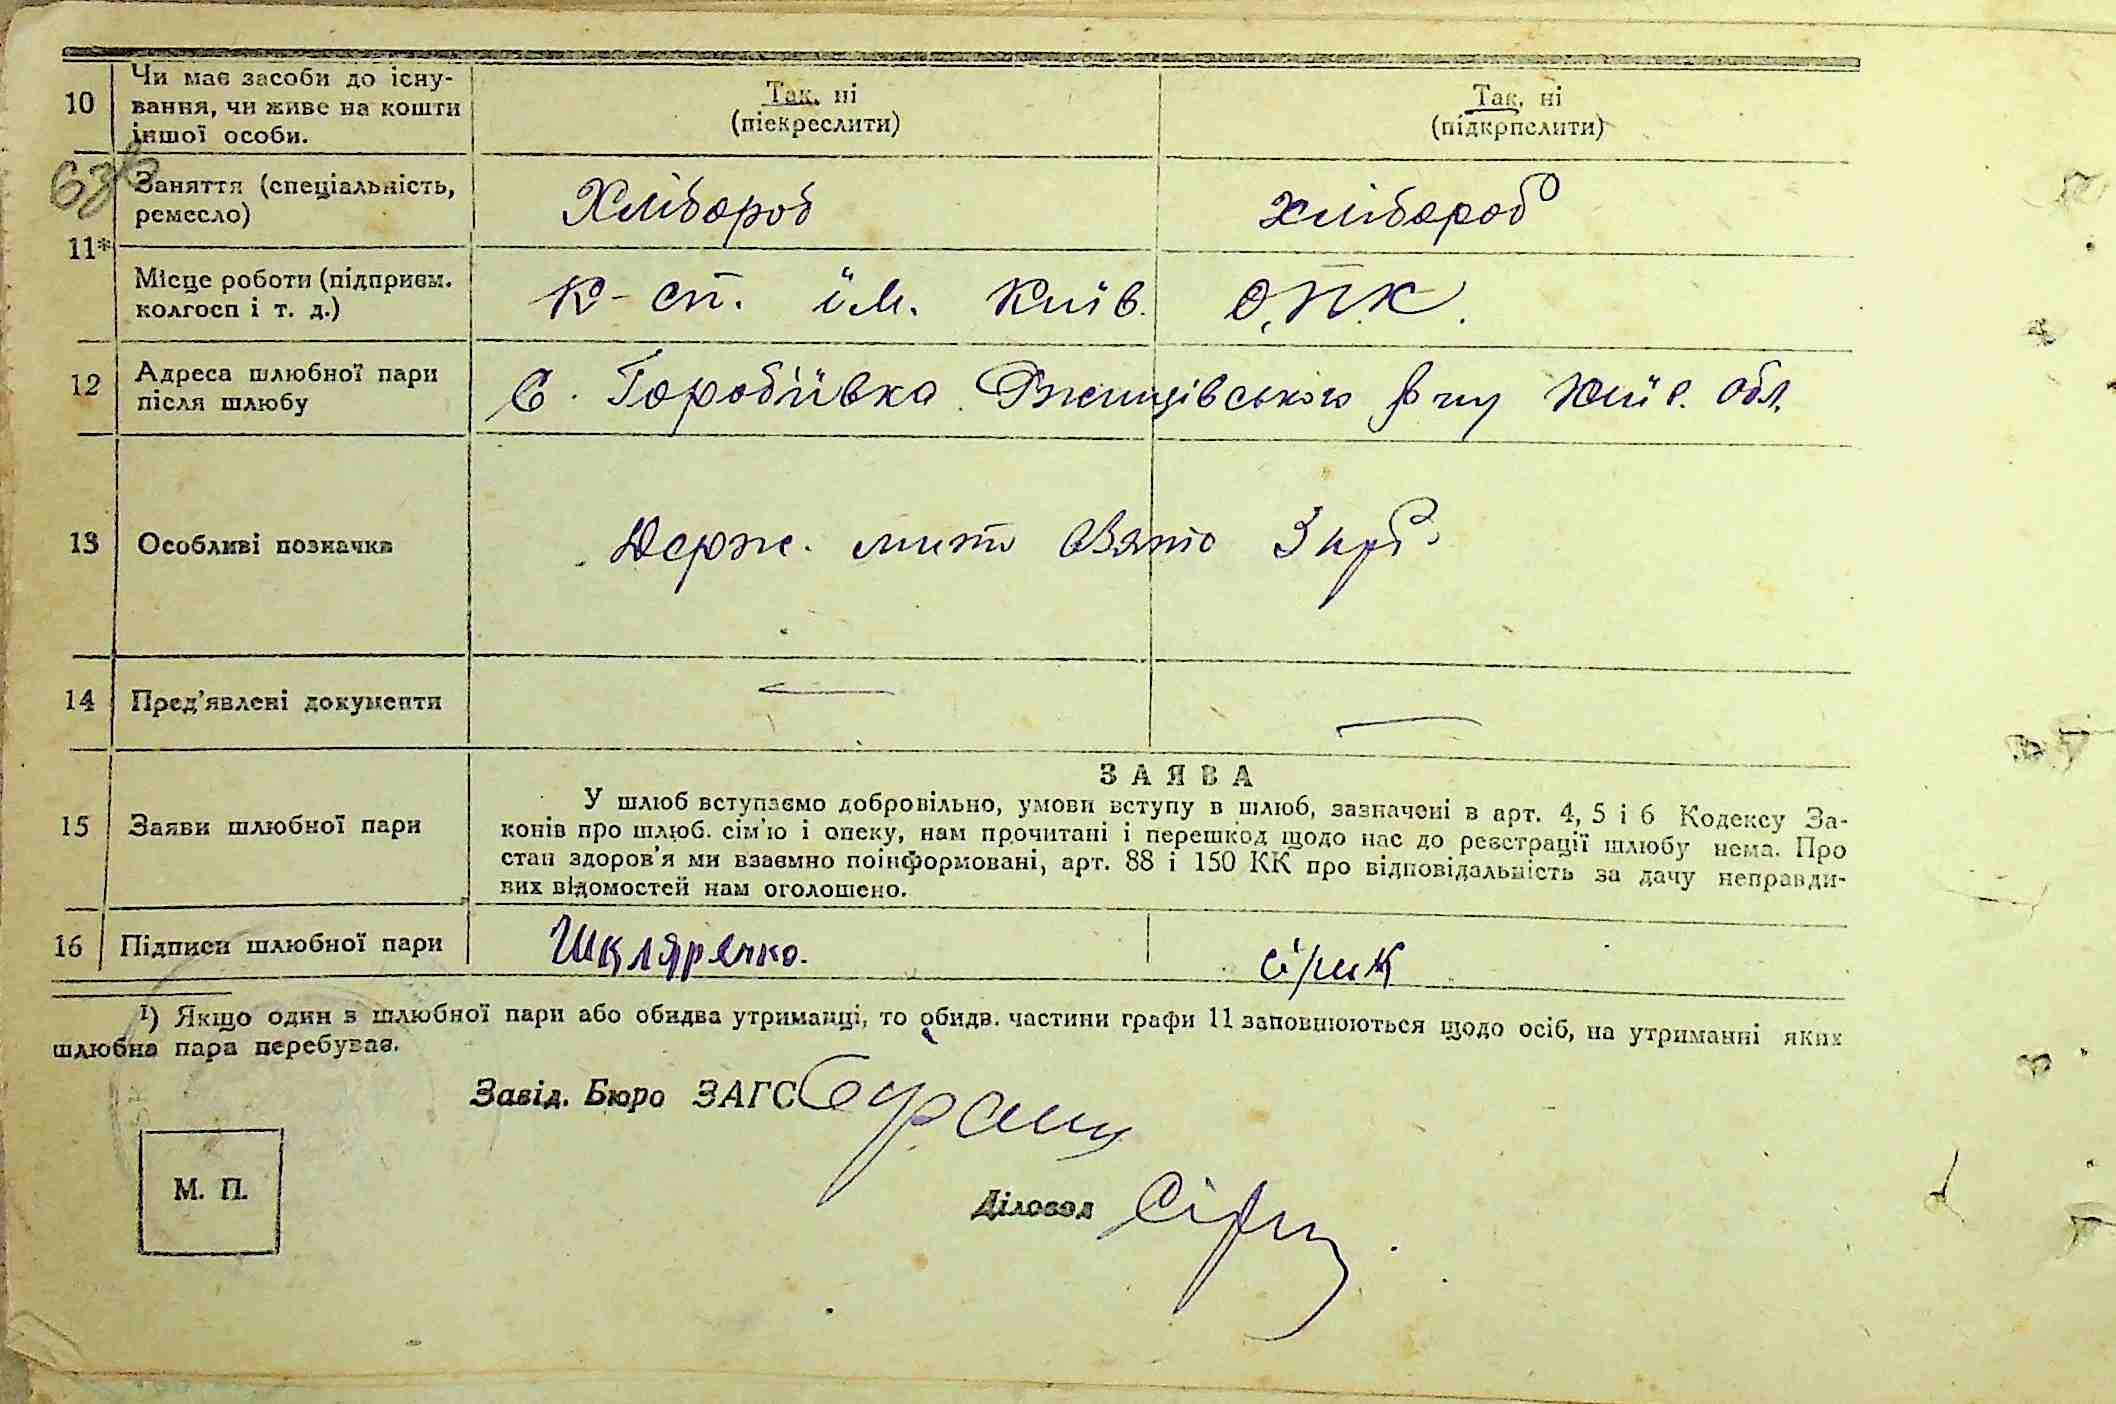 10 Чи має засоби до існу-
вання, чи живе на кошти
іншої особи.
Так, ні
(піекреслити)
Так, ні
(підкрпслити)
63
11*
Заняття (спеціальність,
ремесло)
Хлібороб
хлібороб
Місце роботи (підприєм.
колгосп і т. д.)
К-сп. їм. Київ. О.П.К.
12 Адреса шлюбної пари
після шлюбу
С. Горобіївка Ржищівського р-ну Київ. обл.
13 Особливі позначки
Держ. мито взято 3 крб.
14 Пред'явлені документи
15 Заяви шлюбної пари
ЗАЯВА
У шлюб вступаємо добровільно, умови вступу в шлюб, зазначені в арт. 4, 5 і 6 Кодексу За-
конів про шлюб. сім'ю і опеку, нам прочитані і перешкод щодо нас до реєстрації шлюбу нема. Про
стан здоров'я ми взаємно поінформовані, арт. 88 і 150 КК про відповідальність за дачу неправди-
вих відомостей нам оголошено.
16 Підписи шлюбної пари
Шкляречко.
сірик
¹) Якщо один з шлюбної пари або обидва утриманці, то обидв. частини графи 11 заповнюються щодо осіб, на утриманні яких
шлюбна пара перебуває.
Завід. Бюро ЗАГС
Діловод
М. П.